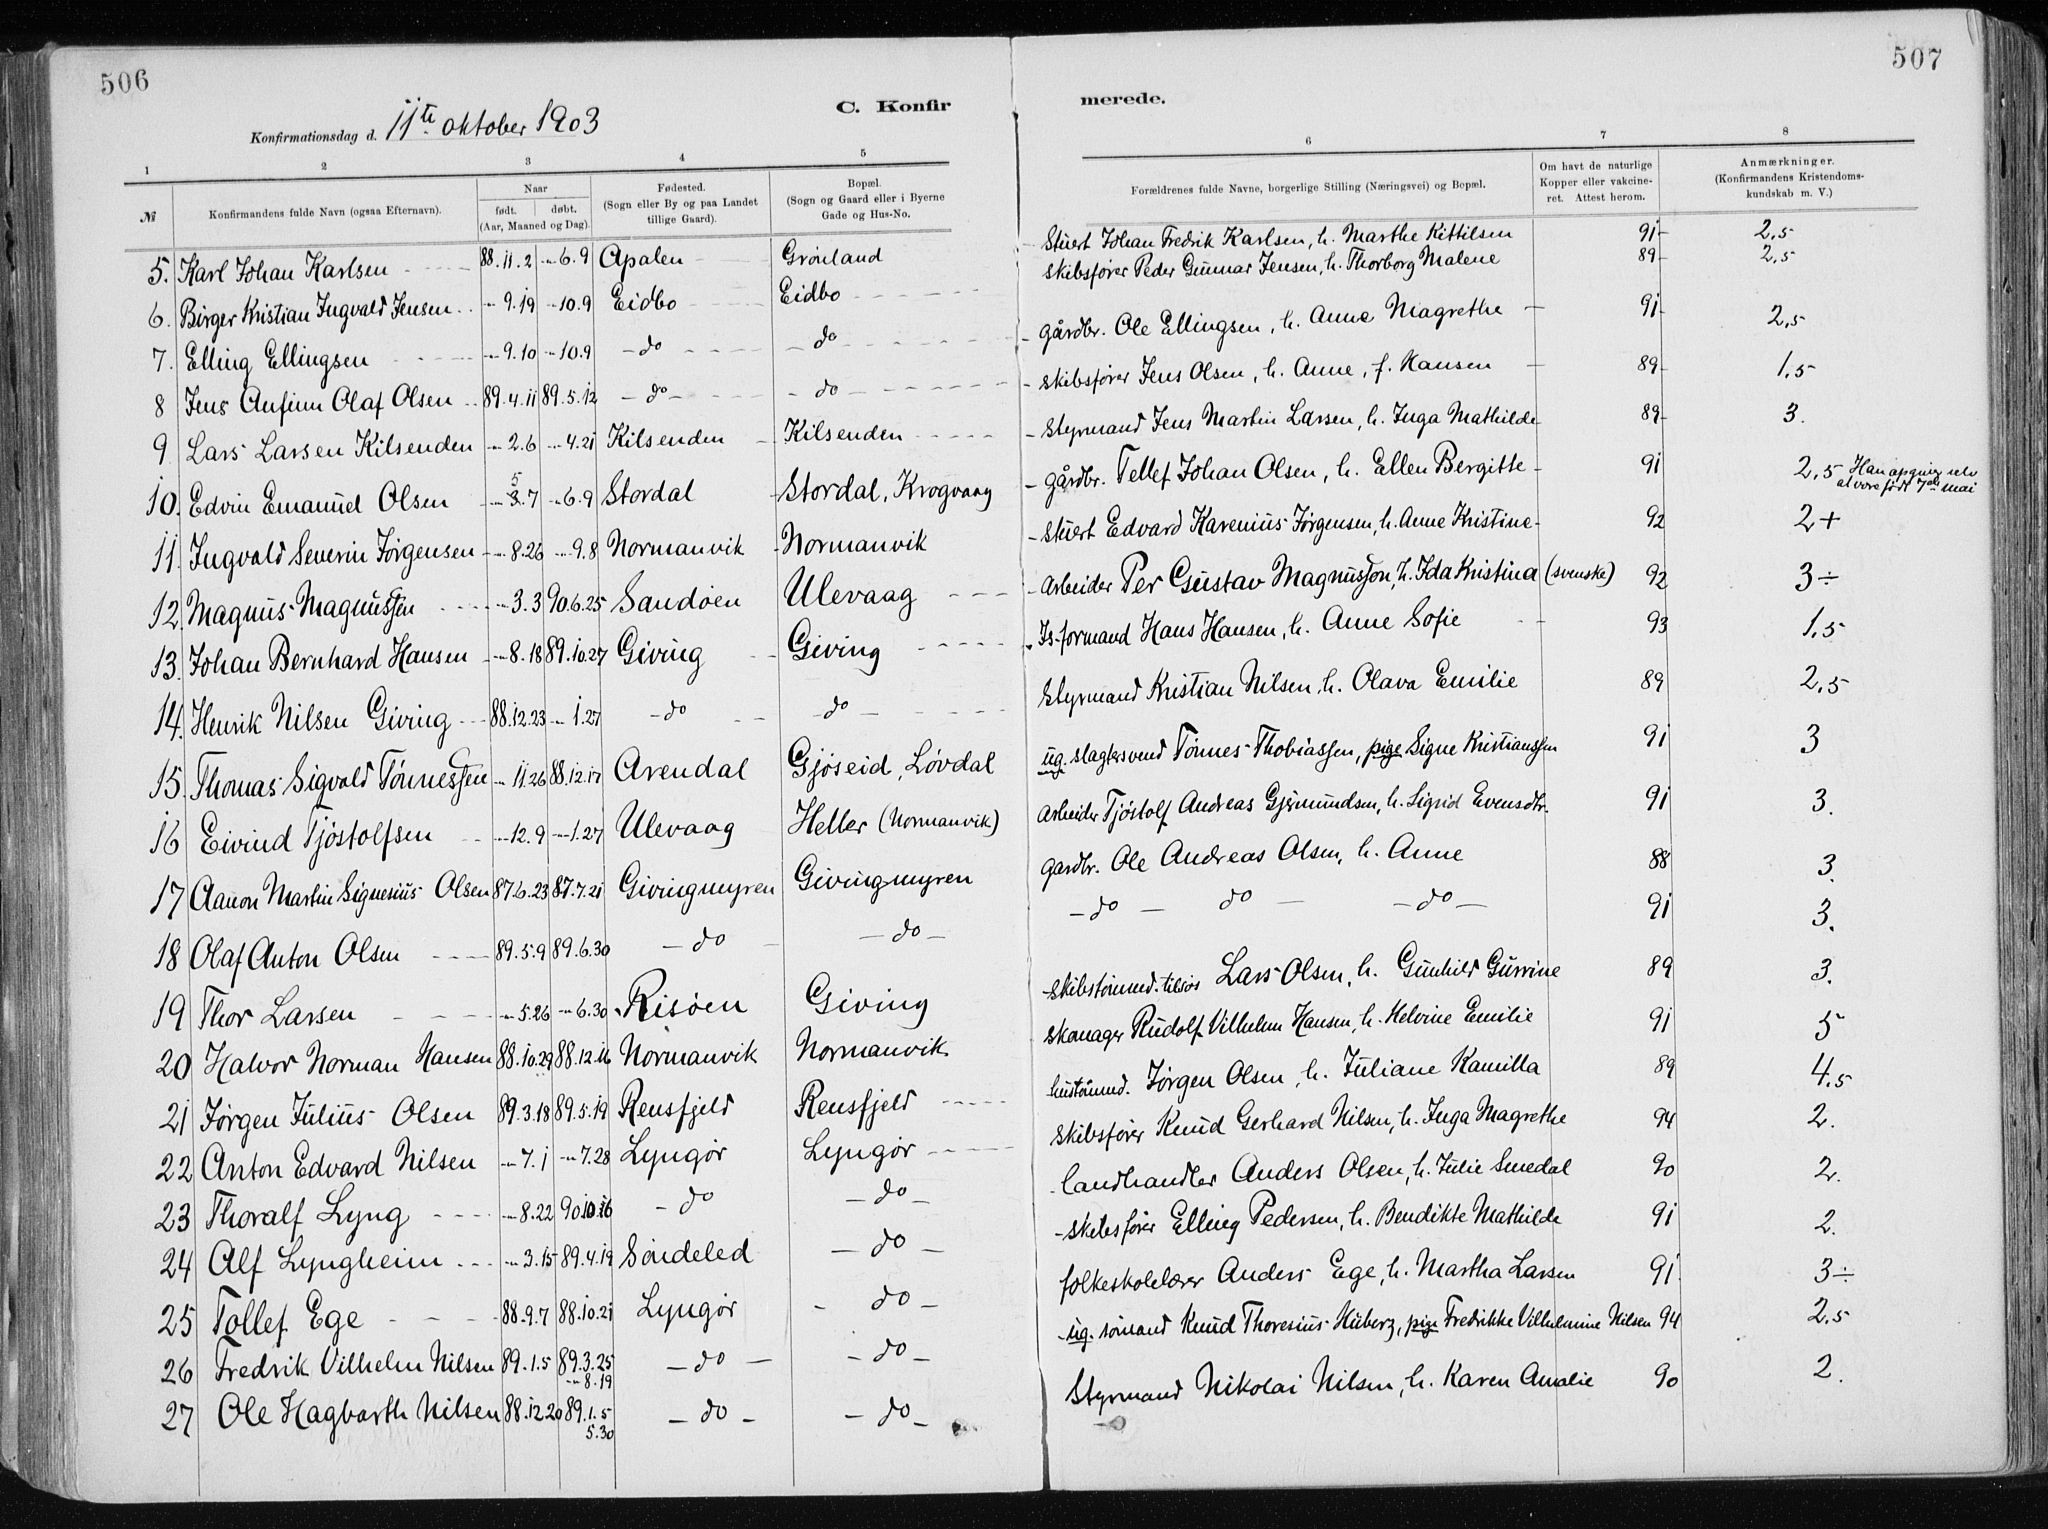 506
507
C. Konfirmerede.
Konfirmationsdag d. 11te oktober 1903
1 2 3 4 5 6 7 8
№ Konfirmandens fulde Navn (ogsaa Efternavn). Naar født. døbt. (Aar, Maaned og Dag). Fødested. (Sogn eller By og paa Landet tillige Gaard). Bopæl. (Sogn og Gaard eller i Byerne Gade og Hus-No. Forældrenes fulde Navne, borgerlige Stilling (Næringsvei) og Bopæl. Om havt de naturlige Kopper eller vakcineret. Attest herom. Anmærkninger. (Konfirmandens Kristendomskundskab m. V.)
5. Karl Johan Karlsen 88.11.2 --6.9 Apalen Grönland Stuert Johan Fredrik Karlsen, h. Marthe Kittilsen 91 2,5
6. Birger Kristian Ingvald Jensen --9.19 --10.9 Eidbo Eidbo skibsfører Peder Gunnar Jensen, h. Thorborg Malene 89 2,5
7. Elling Ellingsen --9.10 --10.9 do do gårdbr. Ole Ellingsen, h. Anne Magrethe 91 2,5
8 Jens Anfinn Olaf Olsen 89.4.11 89.5.12 do do skibsfører Jens Olsen, h. Anne, f. Hansen 89 1,5
9 Lars Larsen Kilsenden --2.6 --4.21 Kilsenden Kilsenden Styrmand Jens Martin Larsen, h. Inga Mathilde 89 3.
10. Edvin Emanuel Olsen --3.7 5 --6.9 Stordal Stordal, Krogvaag gårdbr. Tellef Johan Olsen, h. Ellen Bergitte 91 2,5 Han opgiver selv at være født 7de mai
11. Ingvald Severin Jørgensen --8.26 --9.8 Normanvik Normanvik Stuert Edvard Karenius Jørgensen, h. Anne Kristine 92 2+
12. Magnus Magnussen --3.3 90.6.25 Sandöen Ulevaag Arbeider Per Gustav Magnusson, h. Ida Kristina (svenske) 92 3÷
13. Johan Bernhard Hansen --8.18 89.10.27 Giving Giving Is-formand Hans Hansen, h. Anne Sofie 93 1,5
14. Henrik Nilsen Giving 88.12.23 --1.27 do do Styrmand Kristian Nilsen, h. Olava Emilie 89 2,5
15. Thomas Sigvald Tönnessen --11.26 88.12.17 Arendal Gjöseid, Lövdal ug. slagtersvend Tönnes Thobiassen, pige Signe Kristianssen 91 3
16 Eivind Tjöstolfsen --12.9 --1.27 Ulevaag Heller (Normanvik) Arbeider Tjöstolf Andreas Gjermundsen, h. Sigrid Evensdtr. 91 3.
17 Aanon Martin Signesius Olsen 87.6.23 87.7.21 Givingmyren Givingmyren gardbr. Ole Andreas Olsen, h. Anne 88 3.
18 Olaf Anton Olsen 89.5.9 89.6.30 do do do do do 91 3.
19 Thor Larsen --5.26 --6.30 Risöen Giving skibstømmd. tilsös Lars Olsen, h. Gunhild Gurine 89 3.
20 Halvor Norman Hansen 88.10.29 88.12.16 Normanvik Normanvik skomager Rudolf Vilhelm Hansen, h. Helvine Emilie 91 5
21 Jørgen Julius Olsen 89.3.18 89.5.19 Rensfjeld Rensfjeld hustömmd. Jørgen Olsen, h. Juliane Kamilla 89 4.5
22 Anton Edvard Nilsen --7.1 --7.28 Lyngör Lyngör skibsfører Knud Gerhard Nilsen, h. Inga Magrethe 94 2.
23 Thoralf Lyng --8.22 90.10.26 do do landhandler Anders Olsen, h. Julie Smedal 90 2.
24 Alf Lyngheim --3.15 89.4.19 Söndeled do skibsfører Elling Pedersen, h. Bendikte Mathilde 91 2.
25 Tollef Ege 88.9.7 88.10.21 Lyngör do folkeskolelærer Anders Ege, h. Martha Larsen 91 3÷
26 Fredrik Vilhelm Nilsen 89.1.5 89.3.25 --8.19 do do ug. sömand Knud Thoresius Huberz, pige Fredrikke Vilhelmine Nilsen 94 2.5
27 Ole Hagbarth Nilsen 88.12.20 89.1.5 5.30 do do Styrmand Nikolai Nilsen, h. Karen Amalie 90 2.